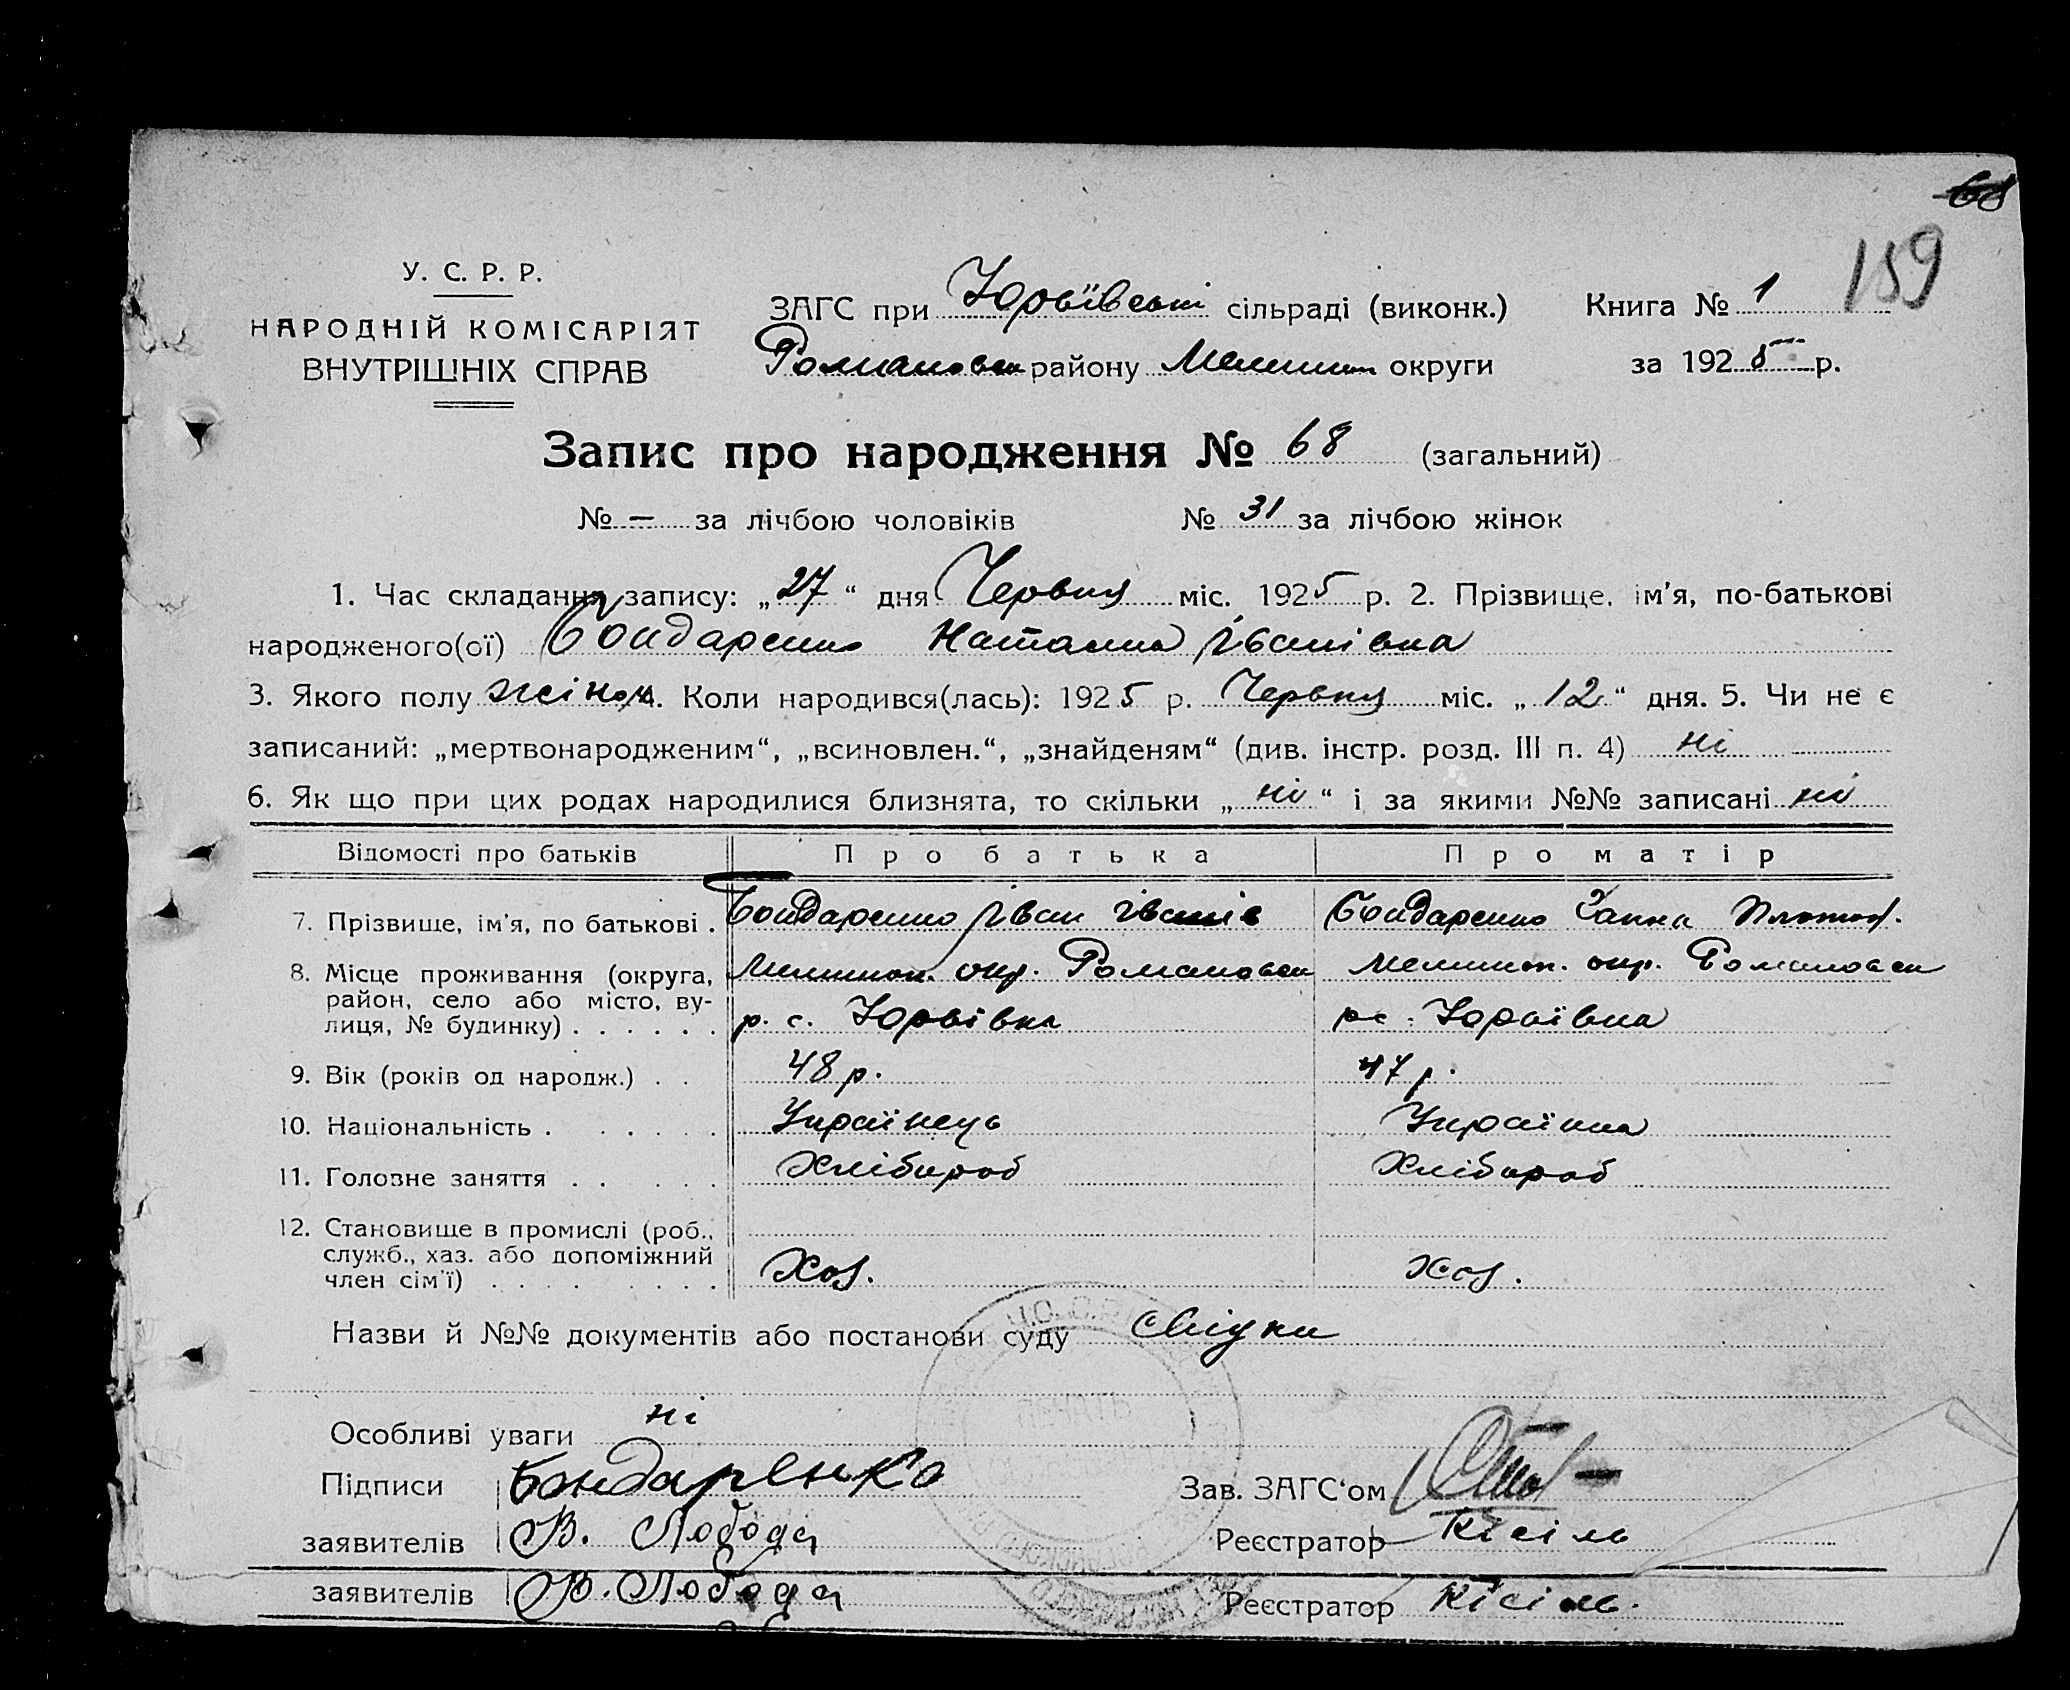 68
159
У. С. Р. Р.
НАРОДНІЙ КОМІСАРІЯТ
ВНУТРІШНІХ СПРАВ
ЗАГС при Юрьївські сільраді (виконк.) Книга № 1
Романовськ району Мелитоп округи за 1925 р.
Запис про народження № 68 (загальний)
№ — за лічбою чоловіків № 31 за лічбою жінок
1. Час складання запису: „27“ дня Червця міс. 1925 р. 2. Прізвище, ім'я, по-батькові
народженого(ої) Бондаренко Наталка Іванівна
3. Якого полу жіноч 4. Коли народився(лась): 1925 р. Червця міс. „12“ дня. 5. Чи не є
записаний: „мертвонародженим“, „всиновлен.“, „знайденям“ (див. інстр. розд. III п. 4) ні
6. Як що при цих родах народилися близнята, то скільки „ні“ і за якими №№ записані ні
Відомості про батьків Про батька Про матір
7. Прізвище, ім'я, по батькові . Бондаренко Іван Іванів Бондаренко Ганна Платон.
8. Місце проживання (округа, район, село або місто, вулиця, № будинку) . . . . . . Мелитоп. окр. Романовськ Мелитоп. окр. Романовськ
р. с. Юрьівка р с. Юрьївка
9. Вік (років од народж.) . . 48 р. 47 р.
10. Національність . . . . . . Українець Українка
11. Головне заняття . . . . . Хлібороб Хлібороб
12. Становище в промислі (роб., служб., хаз. або допоміжний член сім'ї) . . . . . . . . Хоз. Хоз.
Назви й №№ документів або постанови суду
Особливі уваги ні
Підписи Бондаренко Зав. ЗАГС‘ом
заявителів В. Лобода Реєстратор Кісіль
заявителів В. Лобода Реєстратор Кісіль.